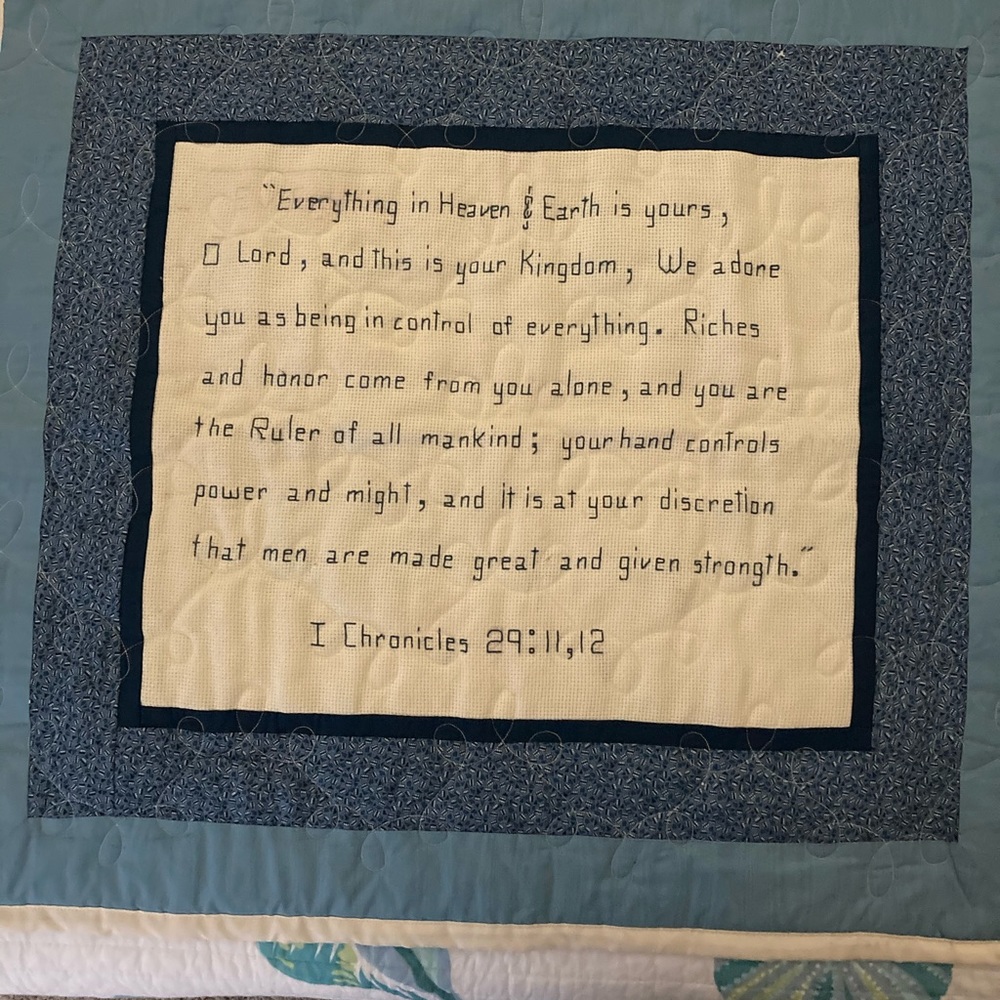 "Everything in Heaven & Earth is yours,
O Lord, and this is your Kingdom, We adore
you as being in control of everything. Riches
and honor come from you alone, and you are
the Ruler of all mankind; your hand controls
power and might, and it is at your discretion
that men are made great and given strongth."
I Chronicles 29:11,12